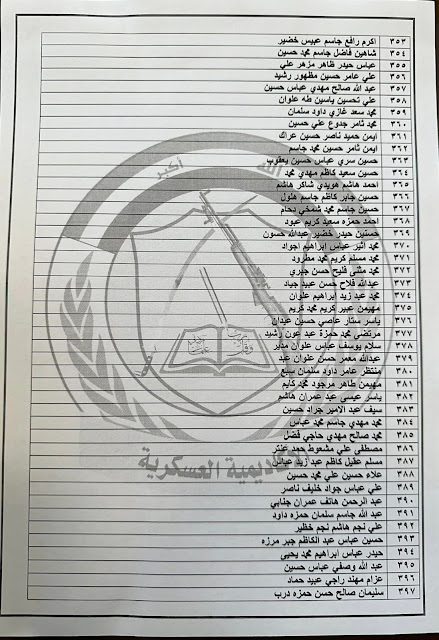 ٣٥٣ اكرم رافع جاسم عبيس خضير
٣٥٤ شاهين فاضل جاسم محمد حسين
٣٥٥ عباس حيدر ظاهر مزهر علي
٣٥٦ علي عامر حسين مظهور رشيد
٣٥٧ عبد الله صالح مهدي عباس حسين
٣٥٨ علي تحسين ياسين طه علوان
٣٥٩ محمد سعد غازي داود سلمان
٣٦٠ محمد ثامر جدوع علي حسين
٣٦١ ايمن حميد ناصر حسين عراك
٣٦٢ ايمن ثامر حسين محمد جاسم
٣٦٣ حسين سري عباس حسين يعقوب
٣٦٤ حسين سعيد كاظم مهدي محمد
٣٦٥ احمد هاشم هويدي شاكر هاشم
٣٦٦ حسين جابر كاظم جاسم هلول
٣٦٧ حسين جاسم محمد شمخي دحام
٣٦٨ احمد حمزه سعيد كريم عبود
٣٦٩ حسنين حيدر خضير عبدالله حسون
٣٧٠ محمد اثير عباس ابراهيم اجواد
٣٧١ محمد مسلم كريم محمد مطرود
٣٧٢ محمد مثنى فليح حسن جبري
٣٧٣ عبدالله فلاح حسن عبيد جياد
٣٧٤ محمد عبد زيد ابراهيم علوان
٣٧٥ مهيمن عبير كريم محمد كريم
٣٧٦ ياسر ستار عاصي حسين عبدان
٣٧٧ مرتضى محمد حمزة عبد عون رشيد
٣٧٨ سلام يوسف عباس علوان مدير
٣٧٩ عبدالله معمر حسن علوان عبد
٣٨٠ منتظر عامر داود سلمان سبع
٣٨١ مهيمن طاهر مرجود محمد كايم
٣٨٢ ياسر عيسى عبد عمران هاشم
٣٨٣ سيف عبد الامير جراد حسين
٣٨٤ محمد مهدي جاسم محمد عباس
٣٨٥ محمد صالح مهدي حاجي فضل
٣٨٦ مصطفى علي مشعوط حمد عنتر
٣٨٧ مسلم عقيل كاظم عبد زيد عباس
٣٨٨ علاء حسين علي محمد حسين
٣٨٩ علي عباس جواد خليف ناصر
٣٩٠ عبد الرحمن هاتف عمران جنابي
٣٩١ عبد الله جاسم سلمان حمزه داود
٣٩٢ علي نجم هاشم نجم خظير
٣٩٣ حسين عباس عبد الكاظم جبر مرزه
٣٩٤ حيدر عباس ابراهيم محمد يحيى
٣٩٥ عبد الله وصفي عباس حسين
٣٩٦ عزام مهند راجي عبيد حماد
٣٩٧ سليمان صالح حسن حمزه درب
الله اكبر
الاكاديمية العسكرية